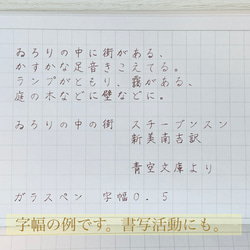 ゐろりの中に街がある、
かすかな足音きこえてる。
ランプがともり、靄がある、
庭の木などに壁などに。
ゐろりの中の街　スチーブンスン
新美南吉訳
青空文庫より
ガラスペン　字幅0.5
字幅の例です。書写活動にも。